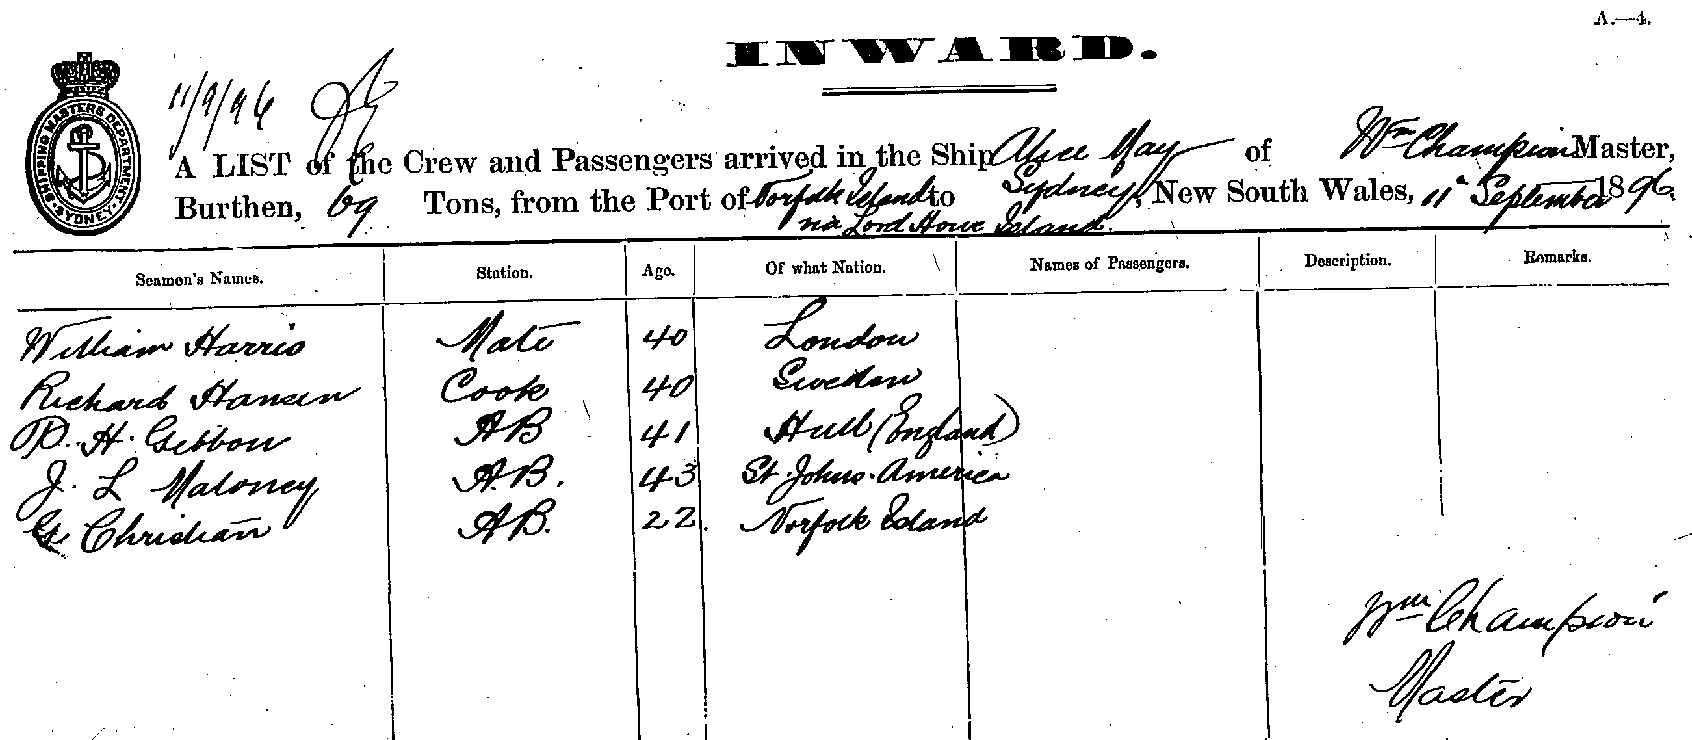 A.—4.
INWARD.
SHIPPING MASTERS DEPARTMENT
SYDNEY
11/9/96
A LIST of the Crew and Passengers arrived in the Ship Alice May of Wm Champion Master,
Burthen, 69 Tons, from the Port of Norfolk Island to Sydney, New South Wales, 11th September 1896
via Lord Howe Island.
Seamen's Names. Station. Age. Of what Nation. Names of Passengers. Description. Remarks.
William Harris Mate 40 London
Richard Hansen Cook 40 Sweden
R. H. Gibbon AB 41 Hull (England)
J. L Maloney A.B. 43 St. Johns. America
G. Christian AB. 22. Norfolk Island
Wm Champion
Master